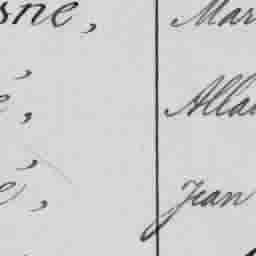 sne, Mar
, Alla
, Jean